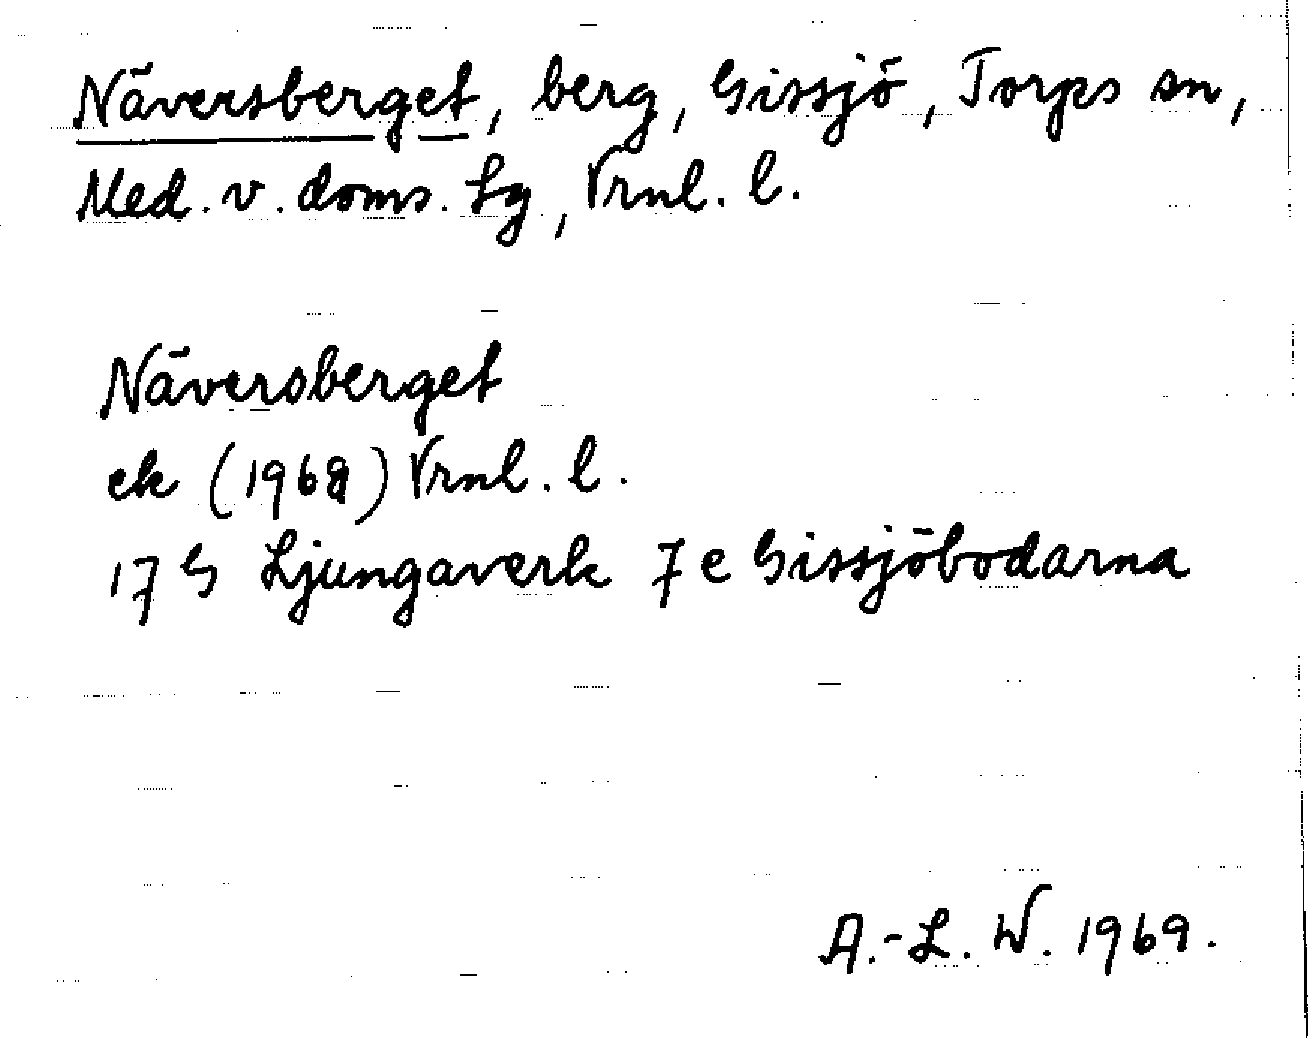 Näversberget, berg, Gissjö, Torps sn,
Med. v. doms. Lg, Vrnl. l.
Näversberget
ek (1968) Vrnl. l.
17 G Ljungaverk 7 e Gissjöbodarna
A.-L. W. 1969.